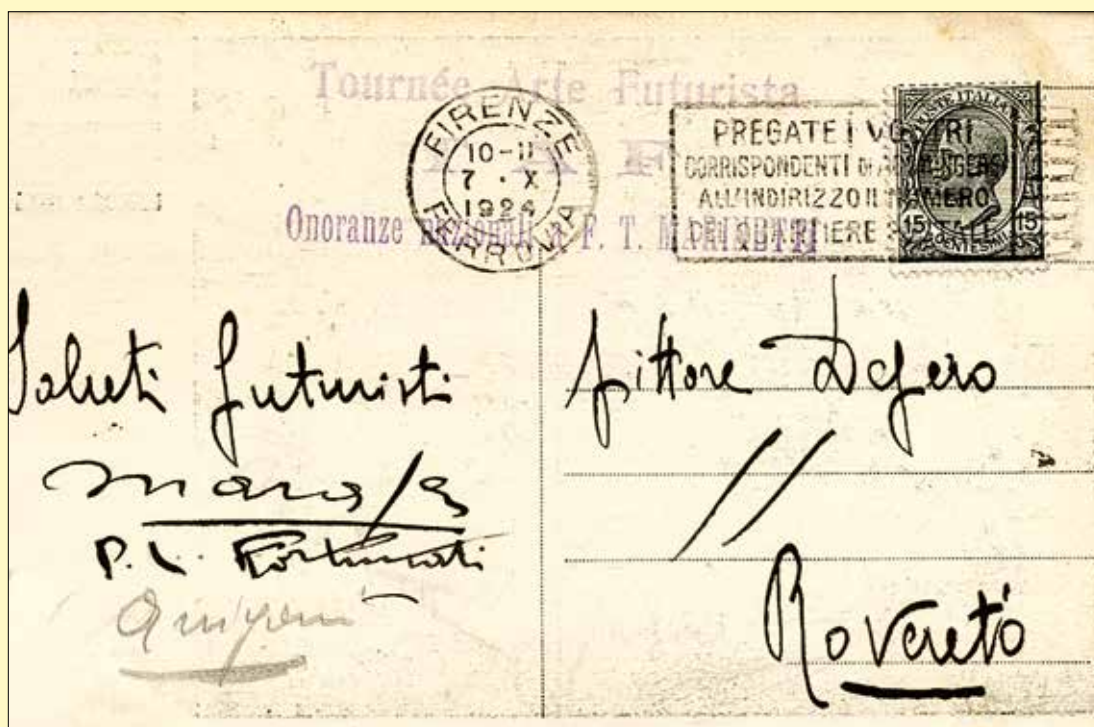 Tournée Arte Futurista
T A F
Onoranze nazionali a F. T. MARINETTI
FIRENZE
10-11
7 . X
1924
FERROVIA
PREGATE I VOSTRI
CORRISPONDENTI DI AGGIUNGERE
ALL'INDIRIZZO IL NUMERO
DEL QUARTIERE POSTALE
POSTE ITALIANE
15 15
CENTESIMI
Saluti futuristi
P. L. Fortunati
pittore Depero
Rovereto